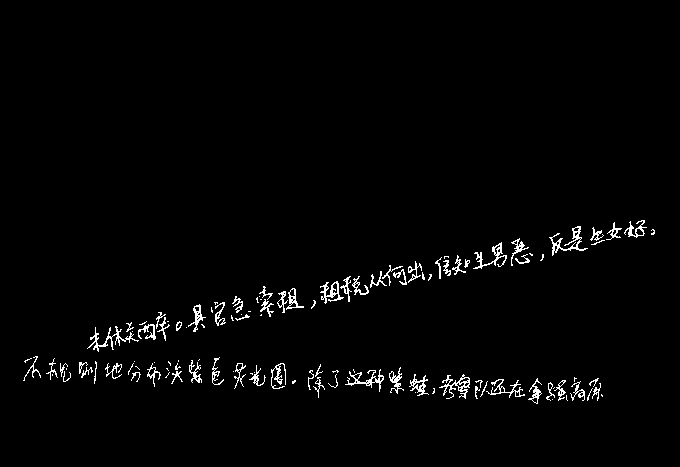 未休关西卒。县官急索租,租税从何出,信知生男恶,反是生女好。
不规则地分布淡紫色荧光圈。除了这种紫蛙,考察队还在拿骚高原